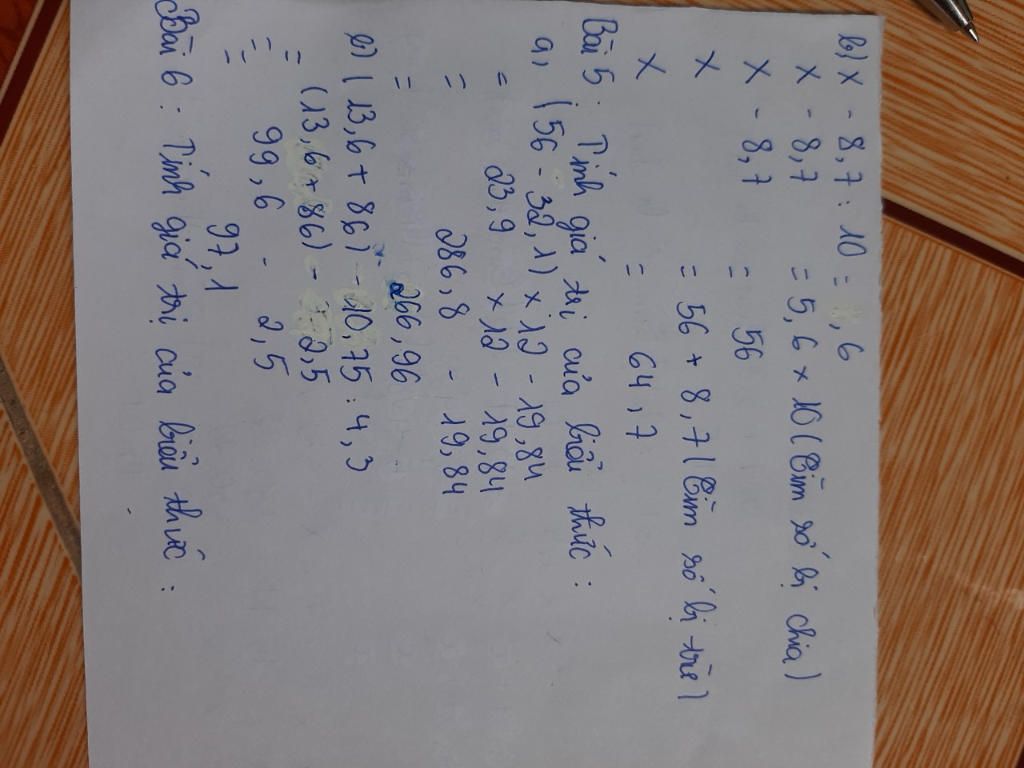 b) X - 8,7 : 10 = ,6
X - 8,7 = 5,6 x 10 (Tìm số bị chia)
X - 8,7 = 56
X = 56 + 8,7 (Tìm số bị trừ)
X = 64,7
Bài 5 : Tính giá trị của biểu thức :
a, (56 - 32,1) x 12 - 19,84
= 23,9 x 12 - 19,84
= 286,8 - 19,84
= 266,96
b) (13,6 + 86) - 10,75 : 4,3
= (13,6 + 86) - 2,5
= 99,6 - 2,5
= 97,1
Bài 6 : Tính giá trị của biểu thức :